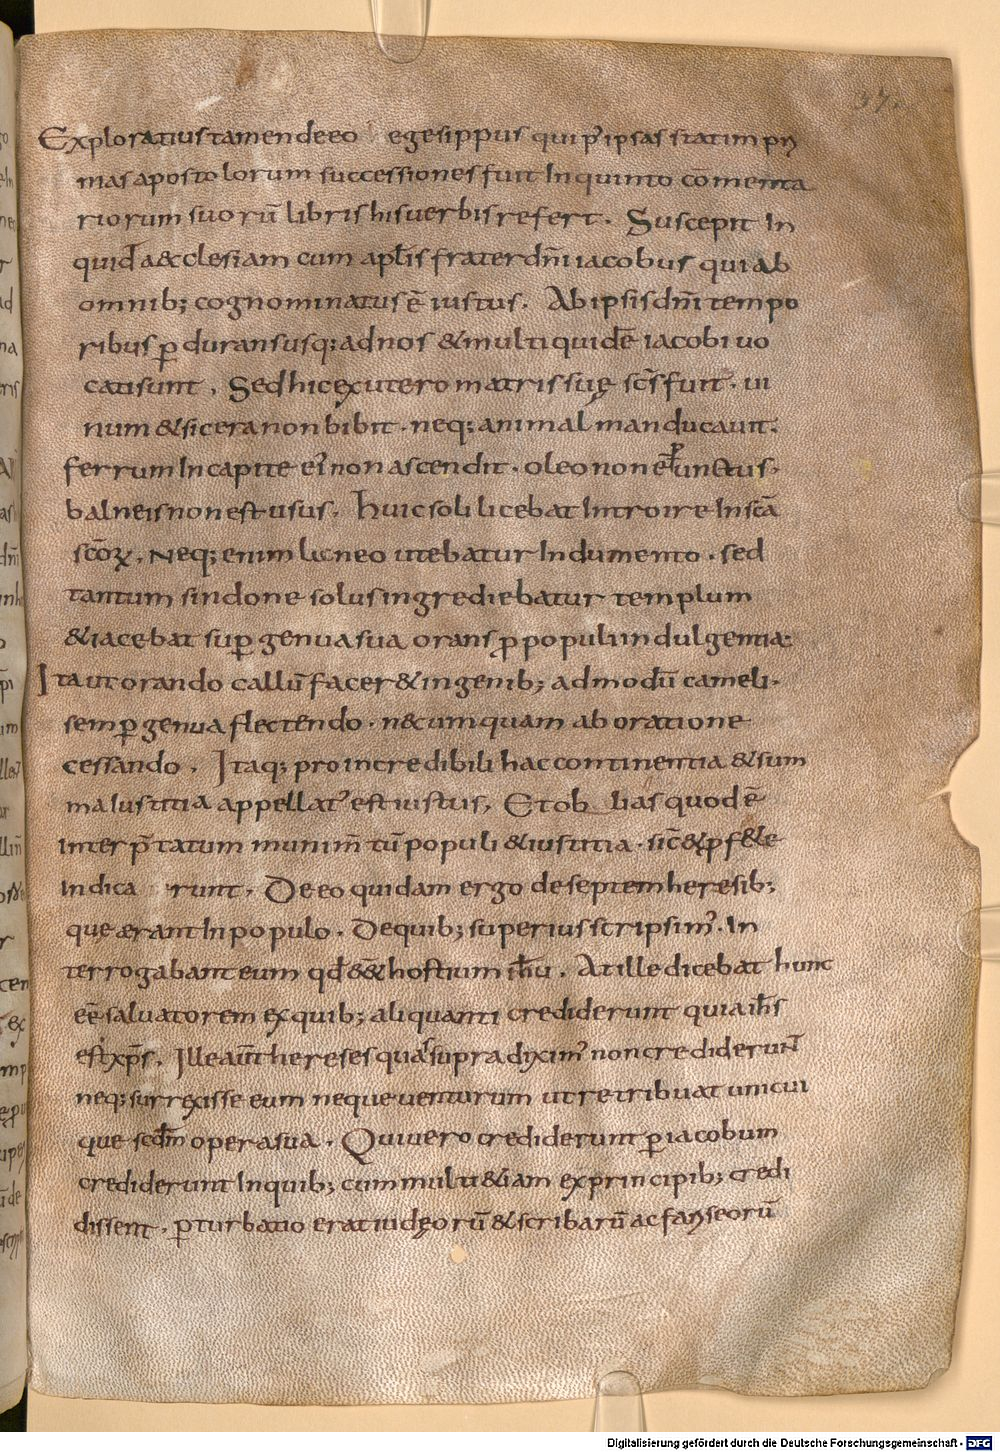 37.
Exploratius tamen de eo egesippus qui p̄ ipsas statim pri
mas apostolorum successiones fuit In quinto cōmenta
riorum suorū libris his uerbis refert. Suscepit In
quid a&clesiam cum apl̄is frater dn̄i iacobus qui ab
omnib; cognominatus ē iustus. Ab ipsis dn̄i tempo
ribus p̱durans usq; ad nos & multi quidē iacobi uo
cati sunt. Sed hic ex utero matris suę sc̄s fuit. ui
num & sicera non bibit. neq; animal manducauit.
ferrum In capite ei' non ascendit. oleo non ē p̱unctus.
balneis non est usus. huic soli licebat Introire In sc̄a
sc̄oꝝ. Neq; enim lineo utebatur Indumento. sed
tantum sindone solus ingrediebatur templum
& iacebat sup̱ genua sua orans p̱ populi indulgentia;
Ita ut orando callū facer& in genib; ad modū cameli.
semp̱ genua flectendo. nec umquam ab oratione
cessando. Itaq; pro incredibili hac continentia & sum
ma Iustitia appellat' est iustus, Et ob lias quod ē
Inter p̄tatum munim̄ tū populi & iustitia. sic̄ & p̱f&e
Indica runt, De eo quidam ergo de septem heresib;
que ęrant In populo. De quib; superius scripsim'. In
terrogabant eum qđ ēē& hostium ih̄u. At ille dicebat hunc
eē saluatorem ex quib; aliquanti crediderunt quia ih̄s
est xp̄s, Ille aūt hereses quas supra diximꝰ non credideruṅt
neq; surrexisse eum neque uenturum ut retribuat unicui
que scdm̄ opera sua. Qui uero crediderunt p̱ iacobum
crediderunt In quib; cum multi &iam ex principib; credi
dissent, p̱turbatio erat iudęorū & scribarū ac fariseorū
Digitalisierung gefördert durch die Deutsche Forschungsgemeinschaft - DFG